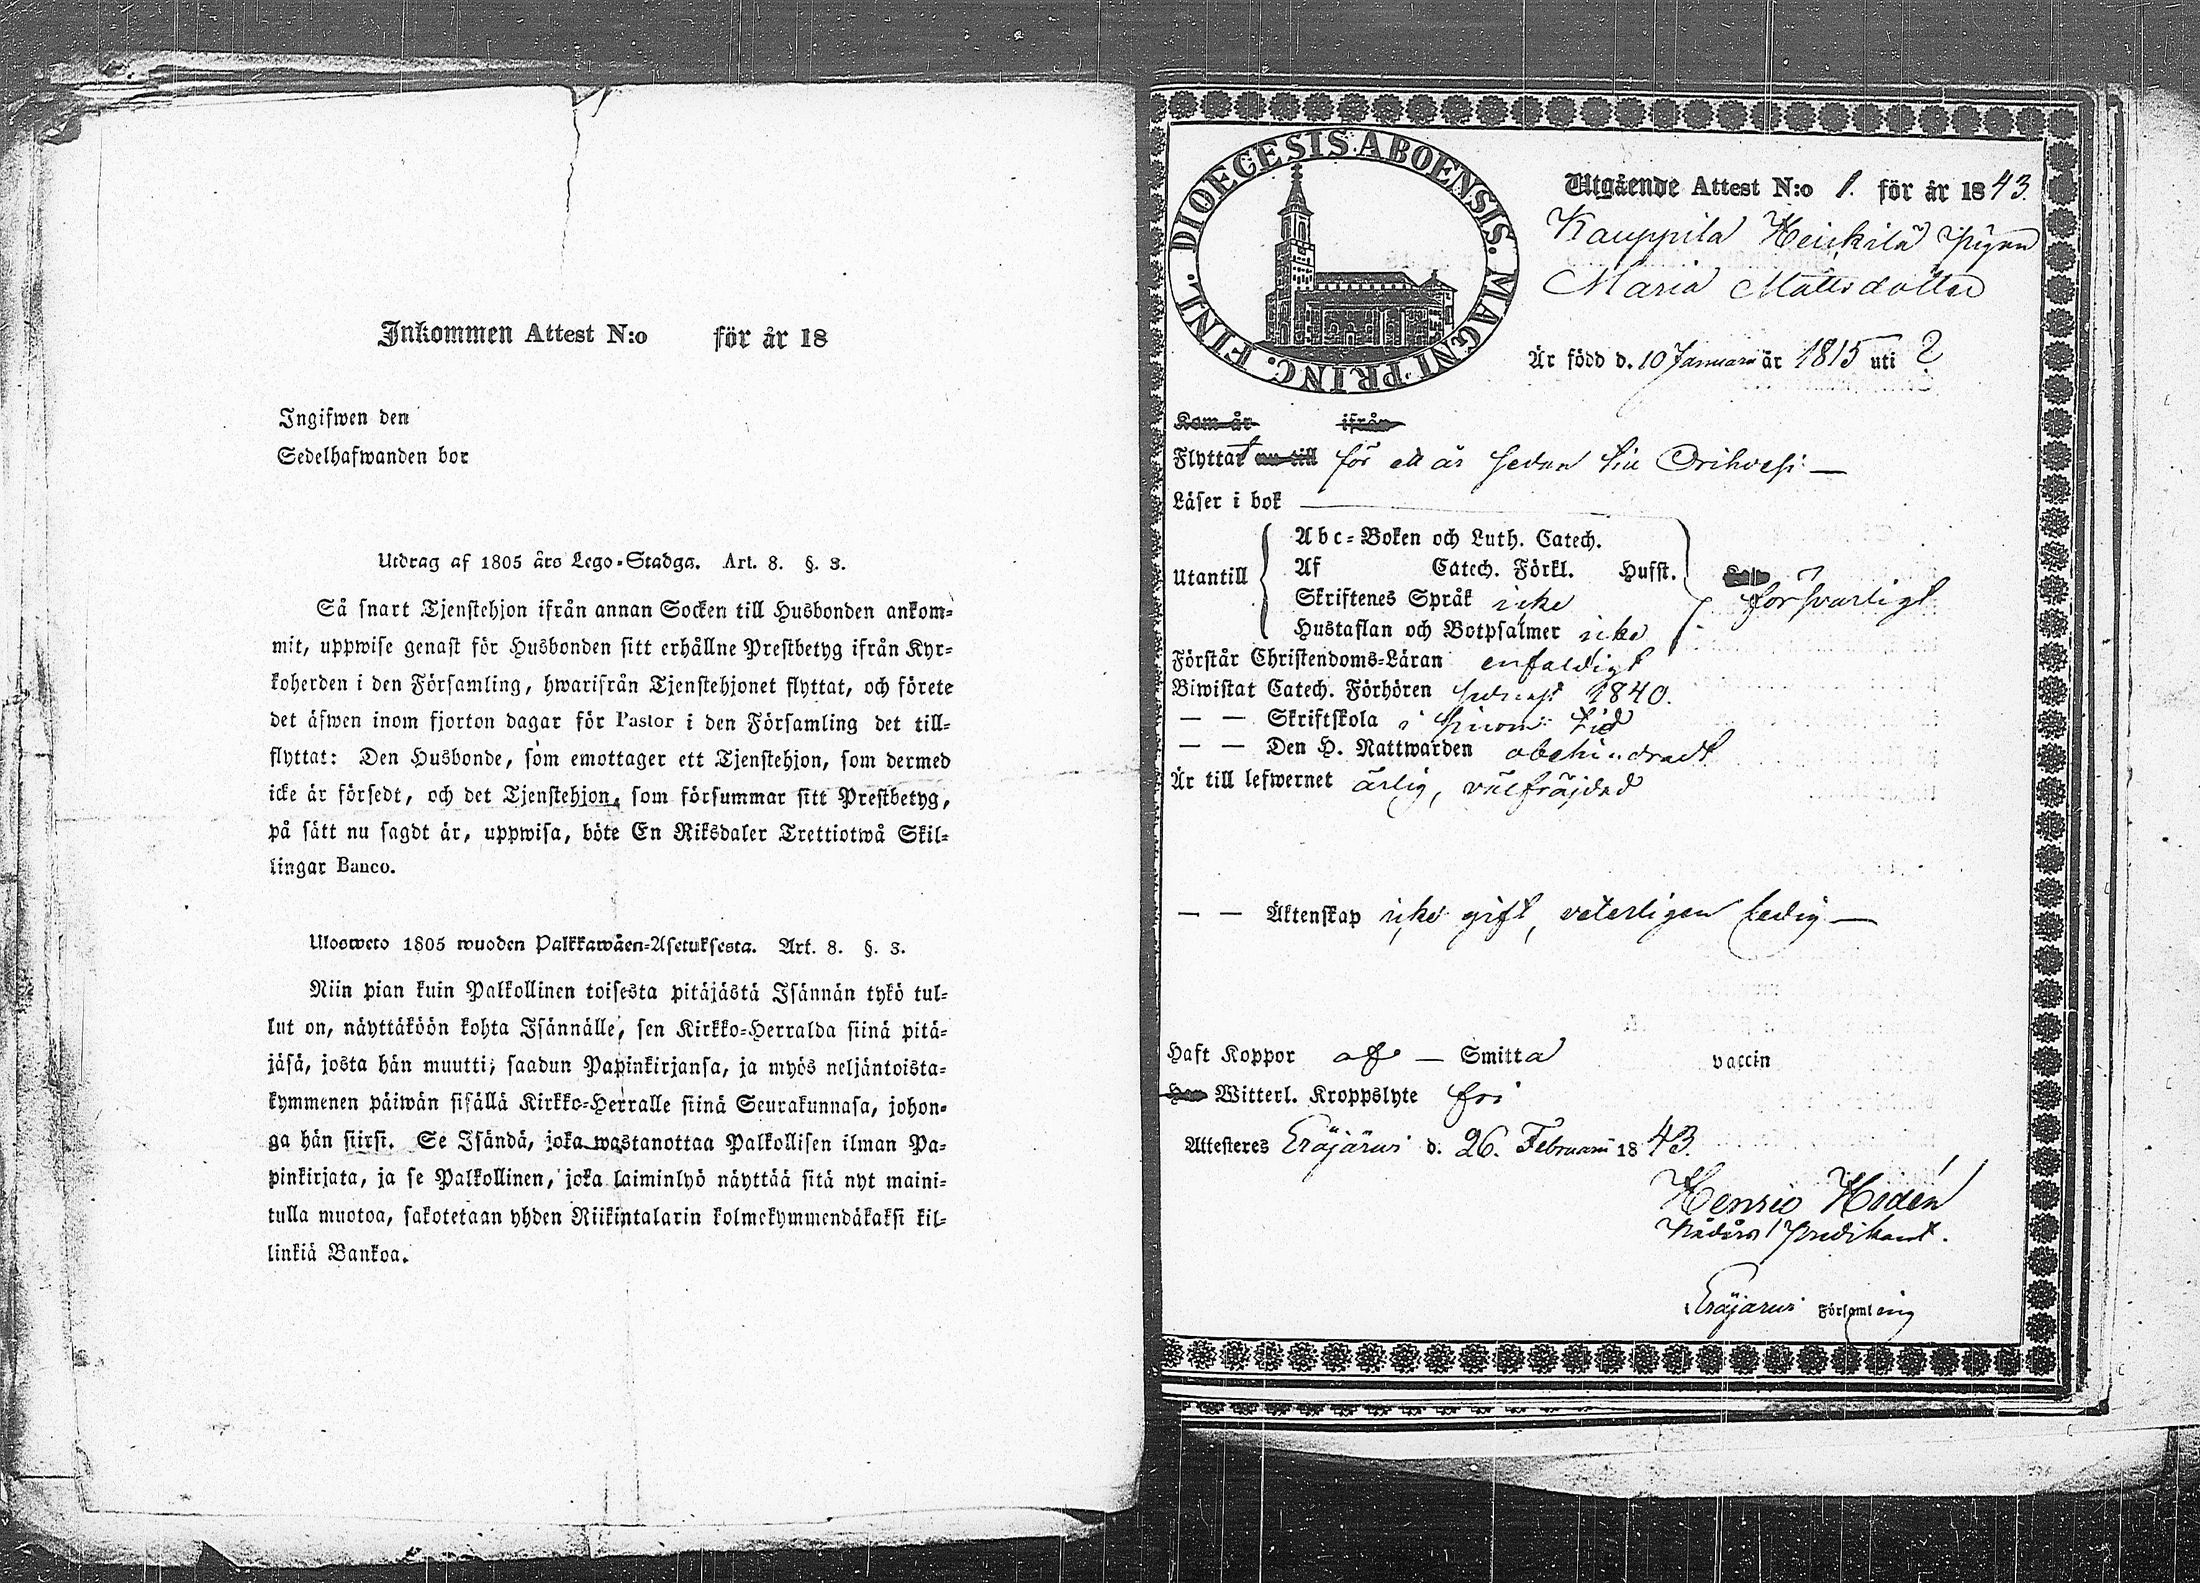 Inkommen Attest N:o för år 18
Ingifwen den
Sedelhafwanden bor
Utdrag af 1805 års Lego-Stadga. Art. 8. §. 3.
Så snart Tjenstehjon ifrån annan Socken till Husbonden ankom-
mit, uppwise genast för Husbonden sitt erhållne Prestbetyg ifrån Kyr-
koherden i den Församling, hwarifrån Tjenstehjonet flyttat, och förete
det äfwen inom fjorton dagar för Pastor i den Församling det till-
flyttat: Den Husbonde, som emottager ett Tjenstehjon, som dermed
icke är försedt, och det Tjenstehjon, som försummar sitt Prestbetyg,
på sätt nu sagdt är, uppwisa, böte En Riksdaler Trettiotwå Skil-
lingar Banco.
Ulosweto 1805 wuoden Palkkawäen-Asetuksesta. Art. 8. §. 3.
Niin pian kuin Palkollinen toisesta pitäjästä Isännän tykö tul-
lut on, näyttäköön kohta Isännälle, sen Kirkko-Herralda siinä pitä-
jäsä, josta hän muutti, saadun Papinkirjansa, ja myös neljäntoista-
kymmenen päiwän sisällä Kirkko-Herralle siinä Seurakunnasa, johon-
ga hän siirsi. Se Isändä, joka wastanottaa Palkollisen ilman Pa-
pinkirjata, ja se Palkollinen, joka laiminlyö näyttää sitä nyt maini-
tulla muotoa, sakotetaan yhden Riikintalarin kolmekymmendäkaksi kil-
linkiä Bankoa.
DIOECESIS ABOENSIS. MAGNI PRINC. FINL.
Utgående Attest N:o 1. för år 1843.
Kauppila Heickilä pigan
Maria Mattsdotter
Är född d. 10 Januari år 1815 uti ?
Kom år ifrån
Flyttat nu till för ett år sedan till Orihvesi —
Läser i bok
Utantill
Abc-Boken och Luth. Catech.
Af Catech. Förkl. Husst.
Skriftenes Språk icke
Hustaflan och Botpsalmer icke
försvarligt
Förstår Christendoms-Läran enfaldigt
Biwistat Catech. Förhören senast 1840.
— — Skriftskola i sinom tid
— — Den H. Nattwarden obehindradt
Är till lefwernet ärlig, välfräjdad
— — Äktenskap icke gift, veterligen ledig —
Haft Koppor af — Smitta vaccin
Har Witterl. Kroppslyte fri
Attesteres Eräjärvi d. 26. Februarii 1843.
Henric Hedén
Nådårs Predikant.
Eräjärvi Församling